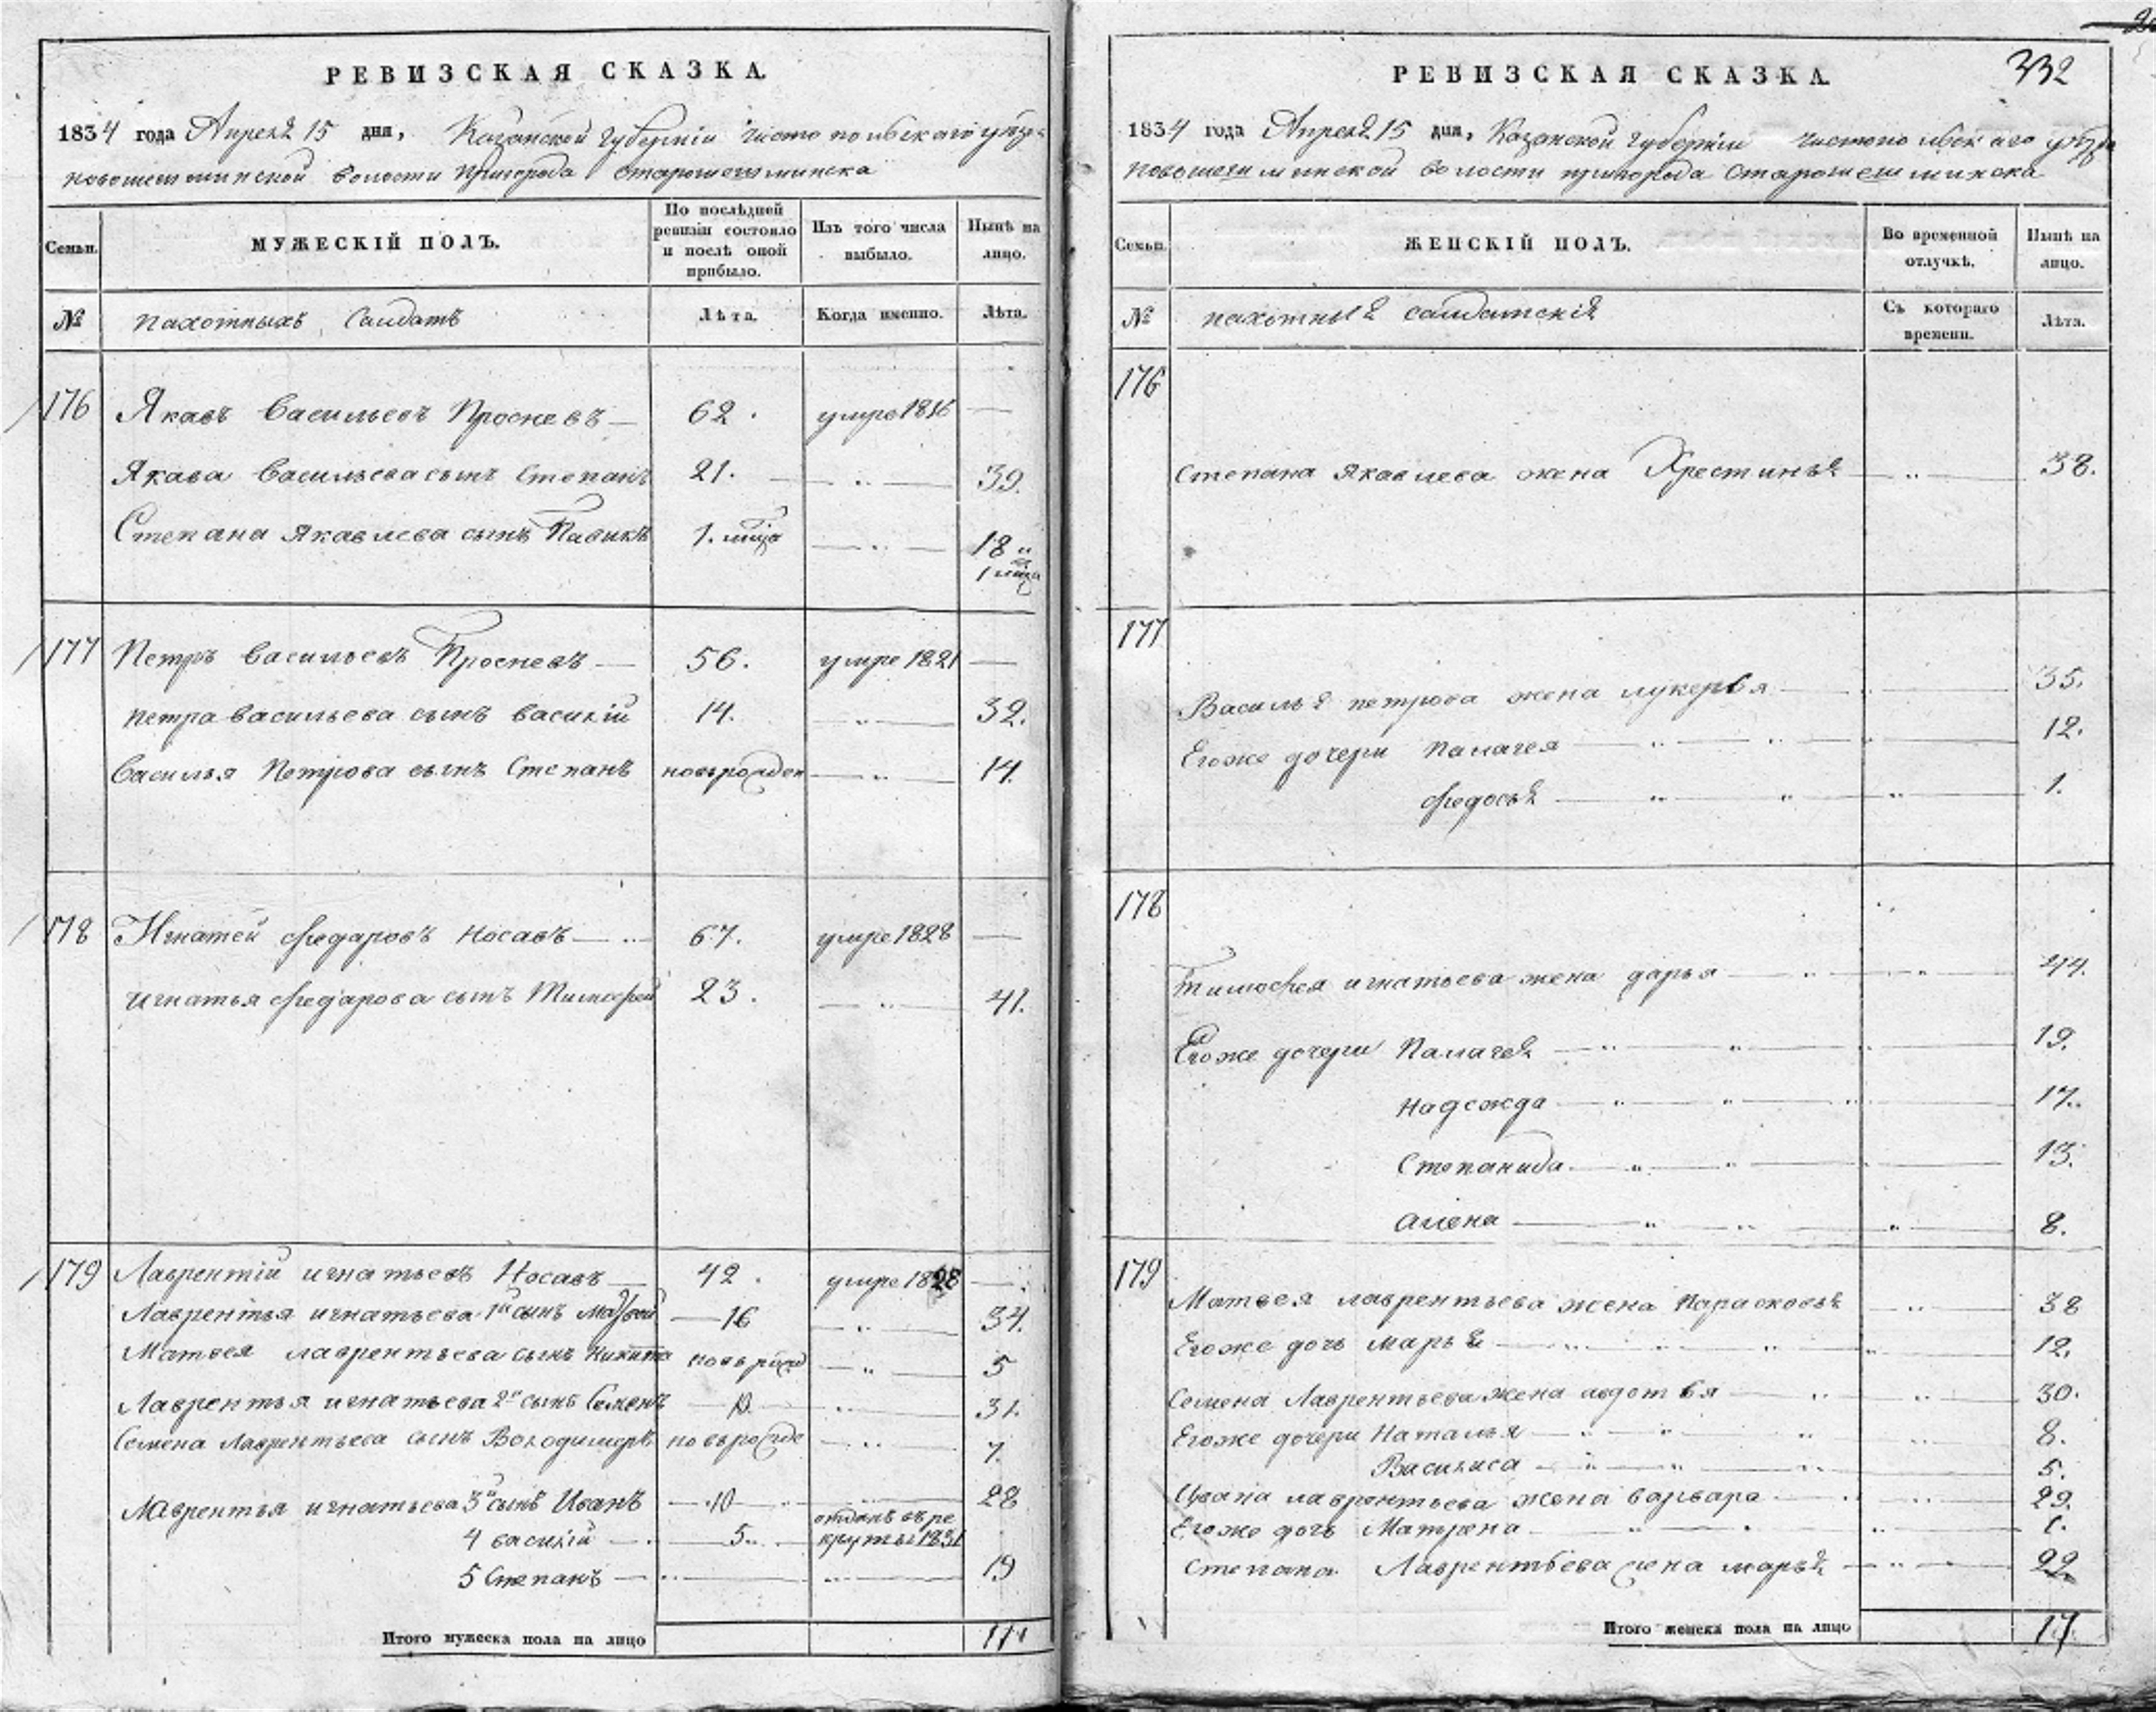 РЕВИЗСКАЯ СКАЗКА.
1834 года Апреля 15 дня, Казанской губернии Чистопольскаго уезда
новошешминской волости пригорода старошешминска
Семьи. МУЖЕСКІЙ ПОЛЪ. По послѣдней ревизіи состояло и послѣ оной прибыло. Изъ того числа выбыло. Нынѣ на лицо.
№ пахотныхъ Салдатъ Лѣта. Когда именно. Лѣта.
176 Якавъ Васильевъ Просневъ 62. умре 1816
Якава Васильева сынъ Степанъ 21. 39.
Степана Якавлева сынъ 1. мца 18 и 1 мца
177 Петръ Васильевъ Просневъ 56. умре 1821
петра васильева сынъ василій 14. 32.
Василья Петрова сынъ Степанъ новърожден 14.
178 Игнатей федаровъ Носавъ 67. умре 1828
игнатья федарова сынъ Тимофей 23. 41.
179 Лаврентій игнатьевъ Носавъ 42. умре 1828
Лаврентья игнатьева 1й сынъ Матвей 16 34.
Матвея лаврентьева сынъ никита новърожд 5
Лаврентья игнатьева 2й сынъ Семенъ 13. 31.
Семена Лаврентьева сынъ Володимеръ новърожде 7.
Лаврентья игнатьева 3й сынъ Иванъ 10 28
4 василій 5. отданъ въ рекруты 1831
5 Степанъ 19
Итого мужеска пола на лицо 11
РЕВИЗСКАЯ СКАЗКА. 332
1834 года Апреля 15 дня, Казанской губерніи чистопольскаго уезда
новошешминской волости пригорода старошешминска
Семьи. ЖЕНСКІЙ ПОЛЪ. Во временной отлучкѣ. Нынѣ на лицо.
№ пахотныя салдатскія Съ котораго времени. Лѣта.
176
степана Якавлева жена Хрестинья 38.
177
Василья петрова жена лукерья 35.
Егоже дочери Палагея 12.
федосья 1.
178
Тимофея игнатьева жена дарья 44.
Егоже дочери Палагея 19.
надежда 17.
Степанида 13.
алена 8.
179
Матвея лаврентьева жена Парасковья 38
Егоже дочь марья 12.
Семена Лаврентьева жена авдотья 30.
Егоже дочери Наталья 8.
Василиса 5.
Ивана лаврентьева жена варвара 29.
Егоже дочь Матрена 1.
степана Лаврентьева жена марья 22.
Итого женска пола на лицо 17